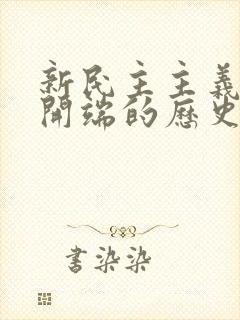 新民主主義
開端的歷史
書染染